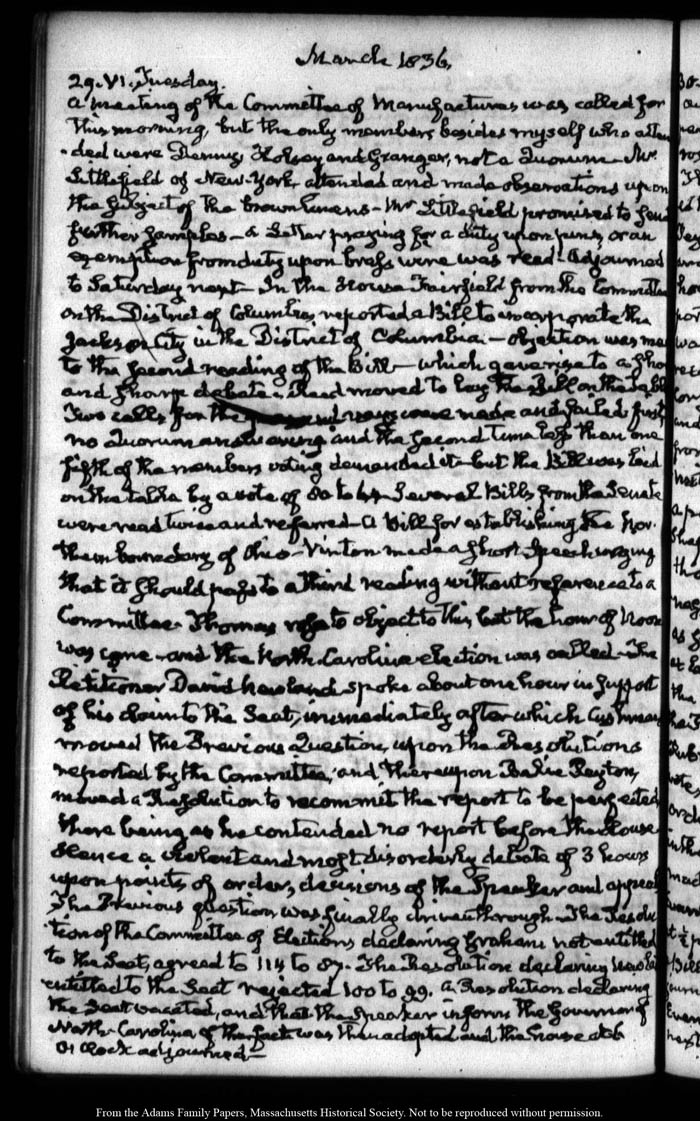 March 1836.
29. VI. Tuesday.
A meeting of the Committee of Manufactures was called for
this morning, but the only members besides myself who atten
ded were Denny, Halsey and Granger, not a Quorum. Mr.
Littlefield of New-York attended and made observations upon
the subject of the brown linens – Mr Littlefield promised to send
further samples – a Letter praying for a duty upon pins, or an
exemption from duty upon brass wire was read – Adjourned
to Saturday next – In the House Fairfield from the Committee
on the District of Columbia, reported a Bill to incorporate the
Jackson City in the District of Columbia – objection was ma
to the second reading of the Bill – which gave rise to a sho
and sharp debate. Reed moved to lay the Bill on the table
Two calls for the yeas and nays were made and failed first
no Quorum answering and the second time less than one
fifth of the members voting demanded it – but the Bill was laid
on the table by a vote of 80 to 64 – Several Bills from the Senate
were read twice and referred – A Bill for establishing the Nor.
thern boundary of Ohio – Vinton made a short Speech urging
that it should pass to a third reading without reference to a
Committee. Thomas rose to object to this, but the hour of Noon
was come – and the North-Carolina election was called – The
Petitioner David Newland spoke about one hour in support
of his claim to the Seat, immediately after which Cushman
moved the Previous Question, upon the Resolutions
reported by the Committee, and thereupon Balie Peyton,
moved a Resolution to recommit the report to be perfected
there being as he contended no report before the House
Hence a violent and most disorderly debate of 3 hours
upon points of order, decisions of the Speaker and appeal
The Previous question was finally driven through – The Resolu
tion of the Committee of Elections declaring Graham not entitled
to the Seat, agreed to 114 to 87. The Resolution declaring Newland
entitled to the Seat rejected 100 to 99. A Resolution declaring
the Seat vacated, and that the Speaker inform the Governor of
North-Carolina of the fact was then adopted and the house at 6
O'Clock adjourned –
From the Adams Family Papers, Massachusetts Historical Society. Not to be reproduced without permission.